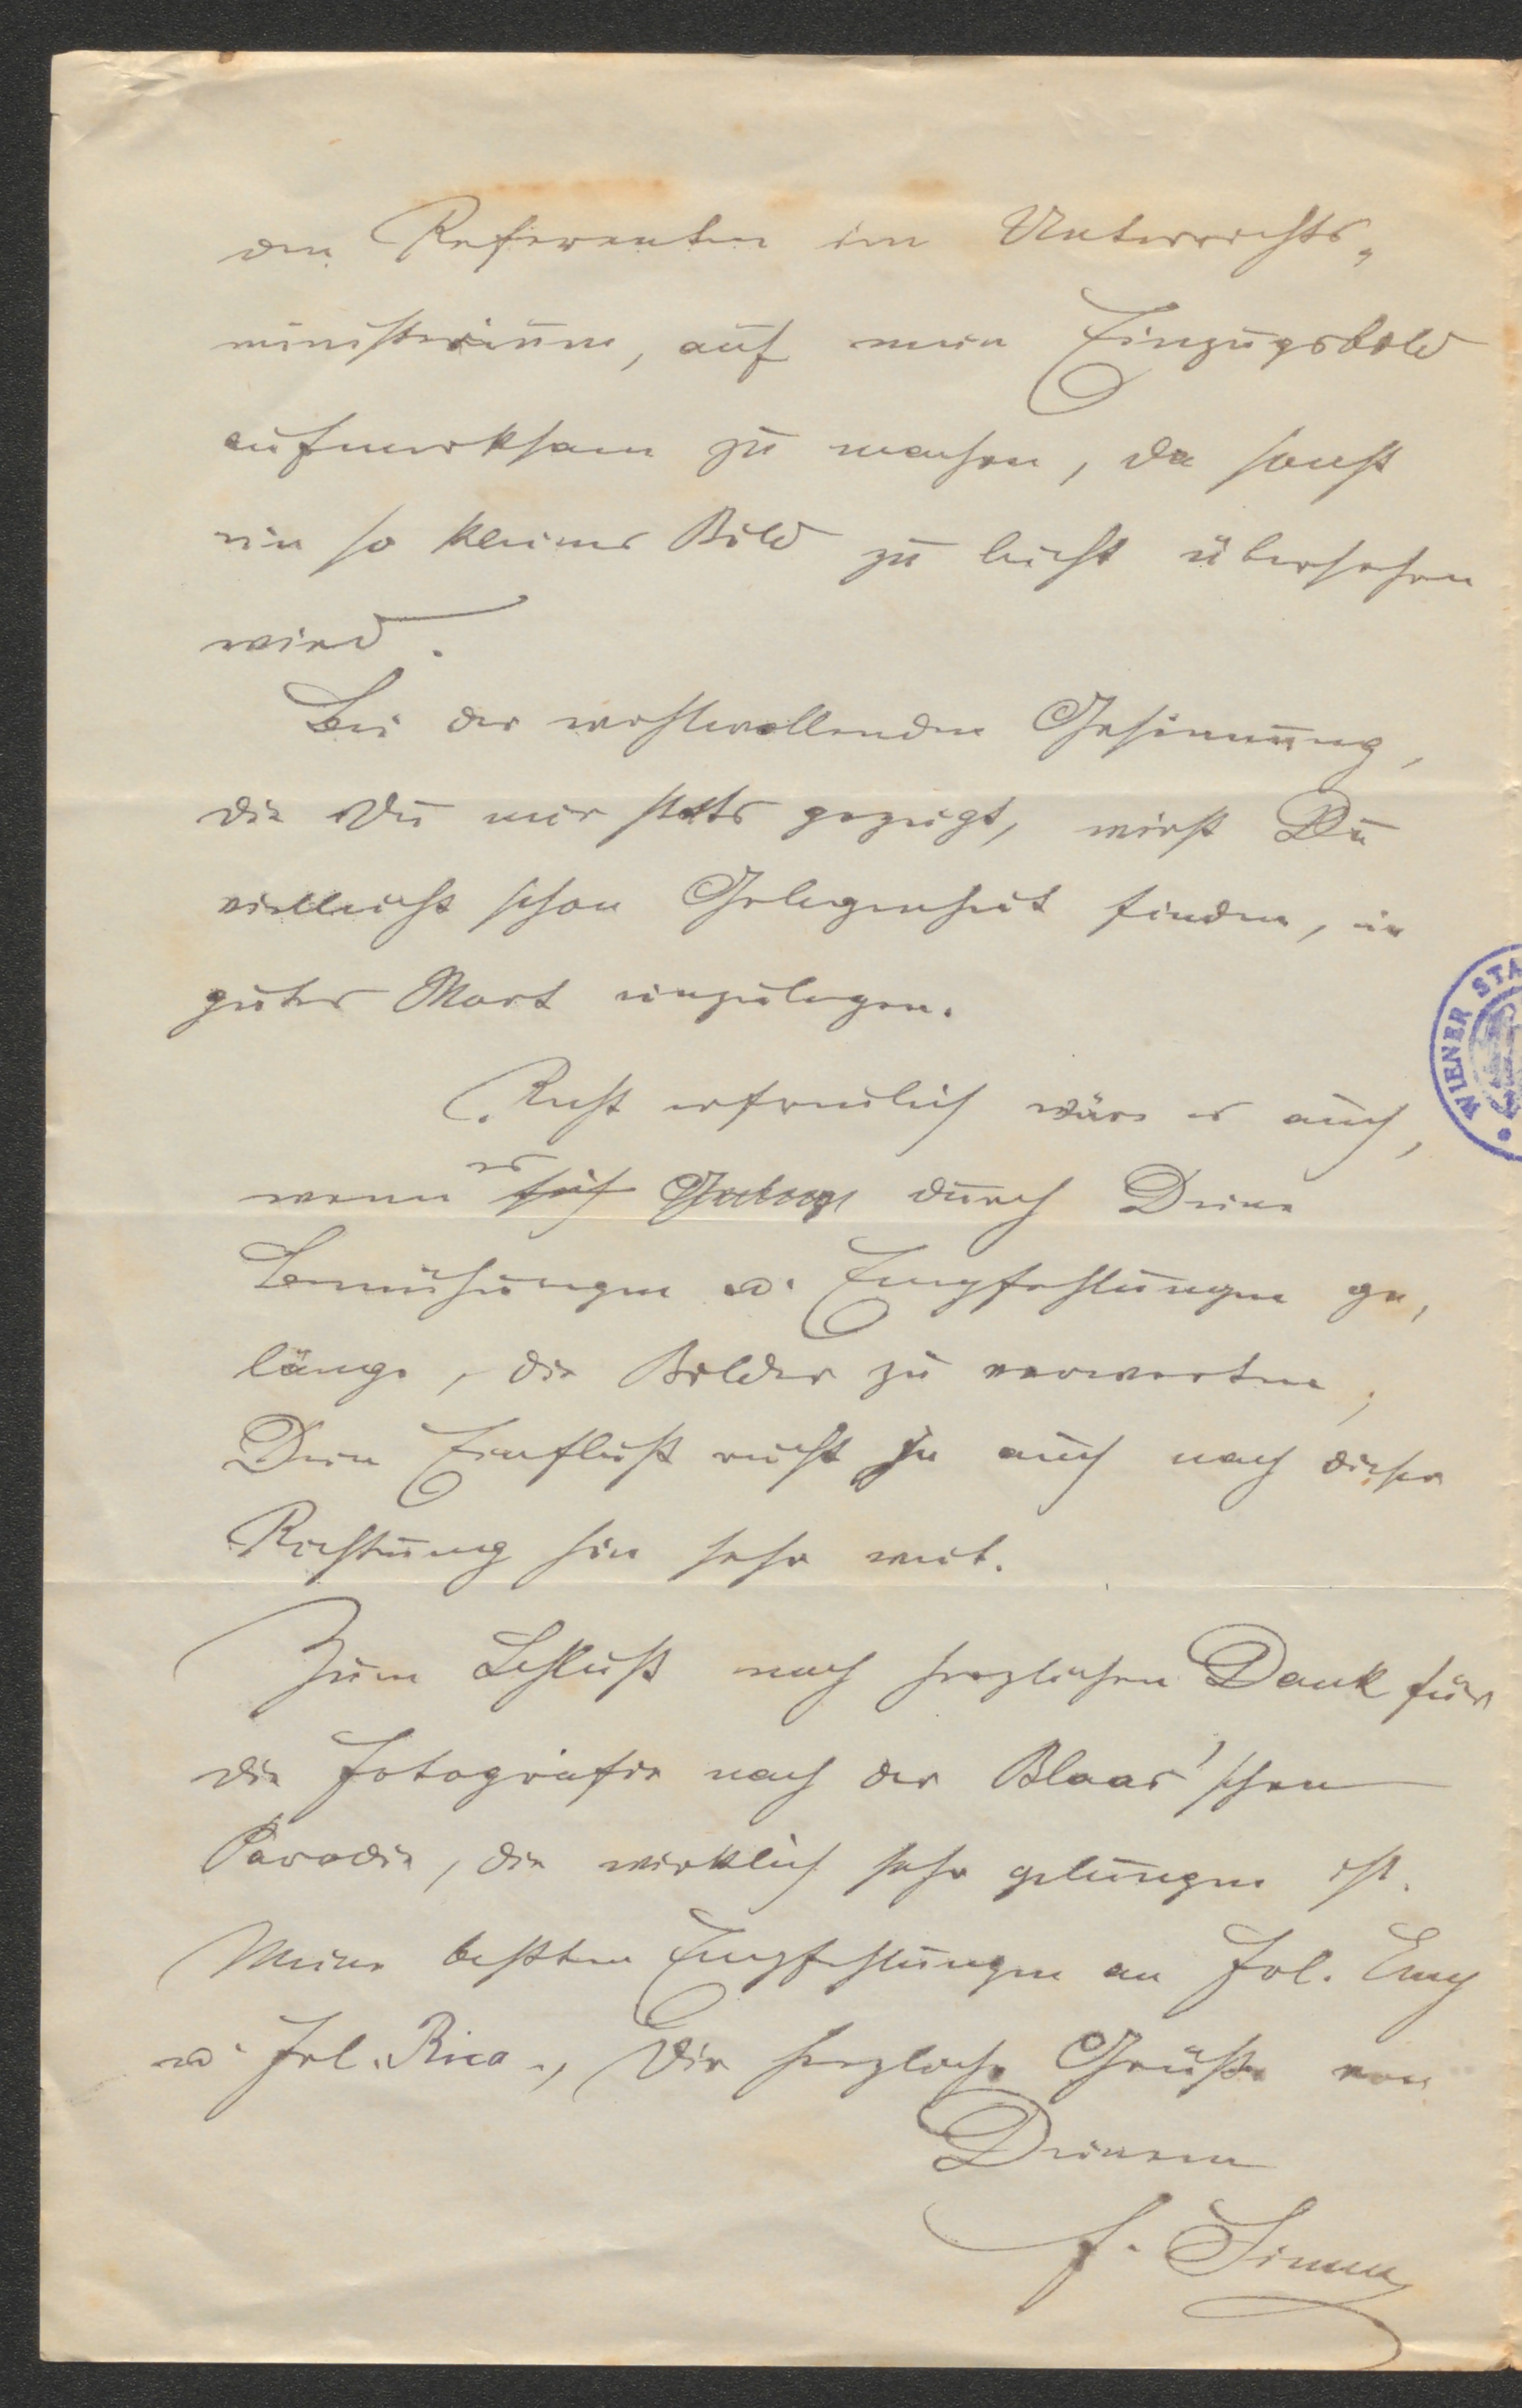 den Referenten im Unterrichts„
ministerium, auf mein Einzugsbild
aufmerksam zu machen, da sonst
ein so kleines Bild zu leicht übersehen
wird.
Bei der wohlwollenden Gesinnung,
die Du mir stets gezeigt, wirst Du
vielleicht schon Gelegenheit finden, ein
gutes Wort einzulegen.
Recht erfreulich wäre es auch,
wenn es durch Deine
Bemühungen u. Empfehlungen ge„
länge, die Bilder zu verwerten;
Dein Einfluß reicht ja auch nach dieser
Richtung hin sehr weit.
Zum Schluß noch herzlichen Dank für
die Fotografie nach der Blaas'schen
Parodie, die wirklich sehr gelungen ist.
Meine beßten Empfehlungen an Frl. Emy
u. Frl. Rica., Dir herzliche Grüße von
Deinem
F. Simm
WIENER STA